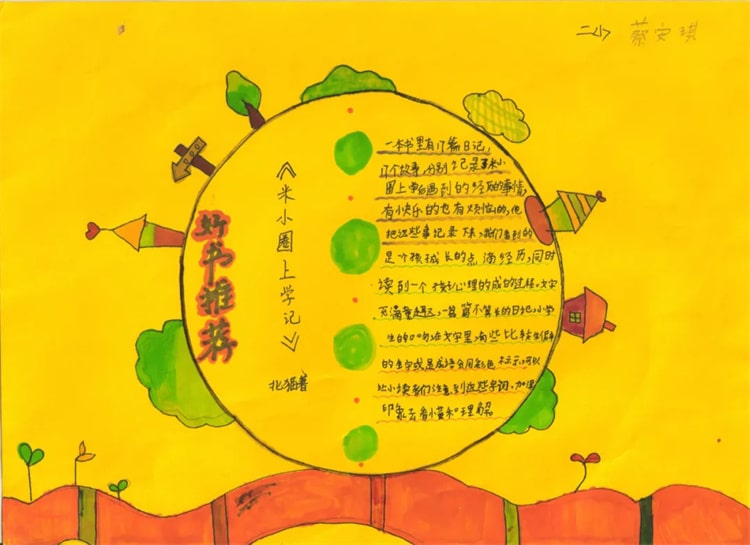 二小 蔡安琪
好书推荐
《米小圈上学记》
北猫著
一本书里有17篇日记，
17个故事，分别记是米小
圈上学遇到的经历的事情，
有快乐的也有烦恼的，但
把这些事记录下来，我们看到的
是个孩成长的点滴经历，同时
读到一个孩心理的成的过程。文字
充满童趣，一篇篇不算长的日记，小学
生的口吻，在文字里有些比较
的生字或是成语会用彩色标示，可以
让小读者们注意到这些字词，加深
印象去看懂和理解